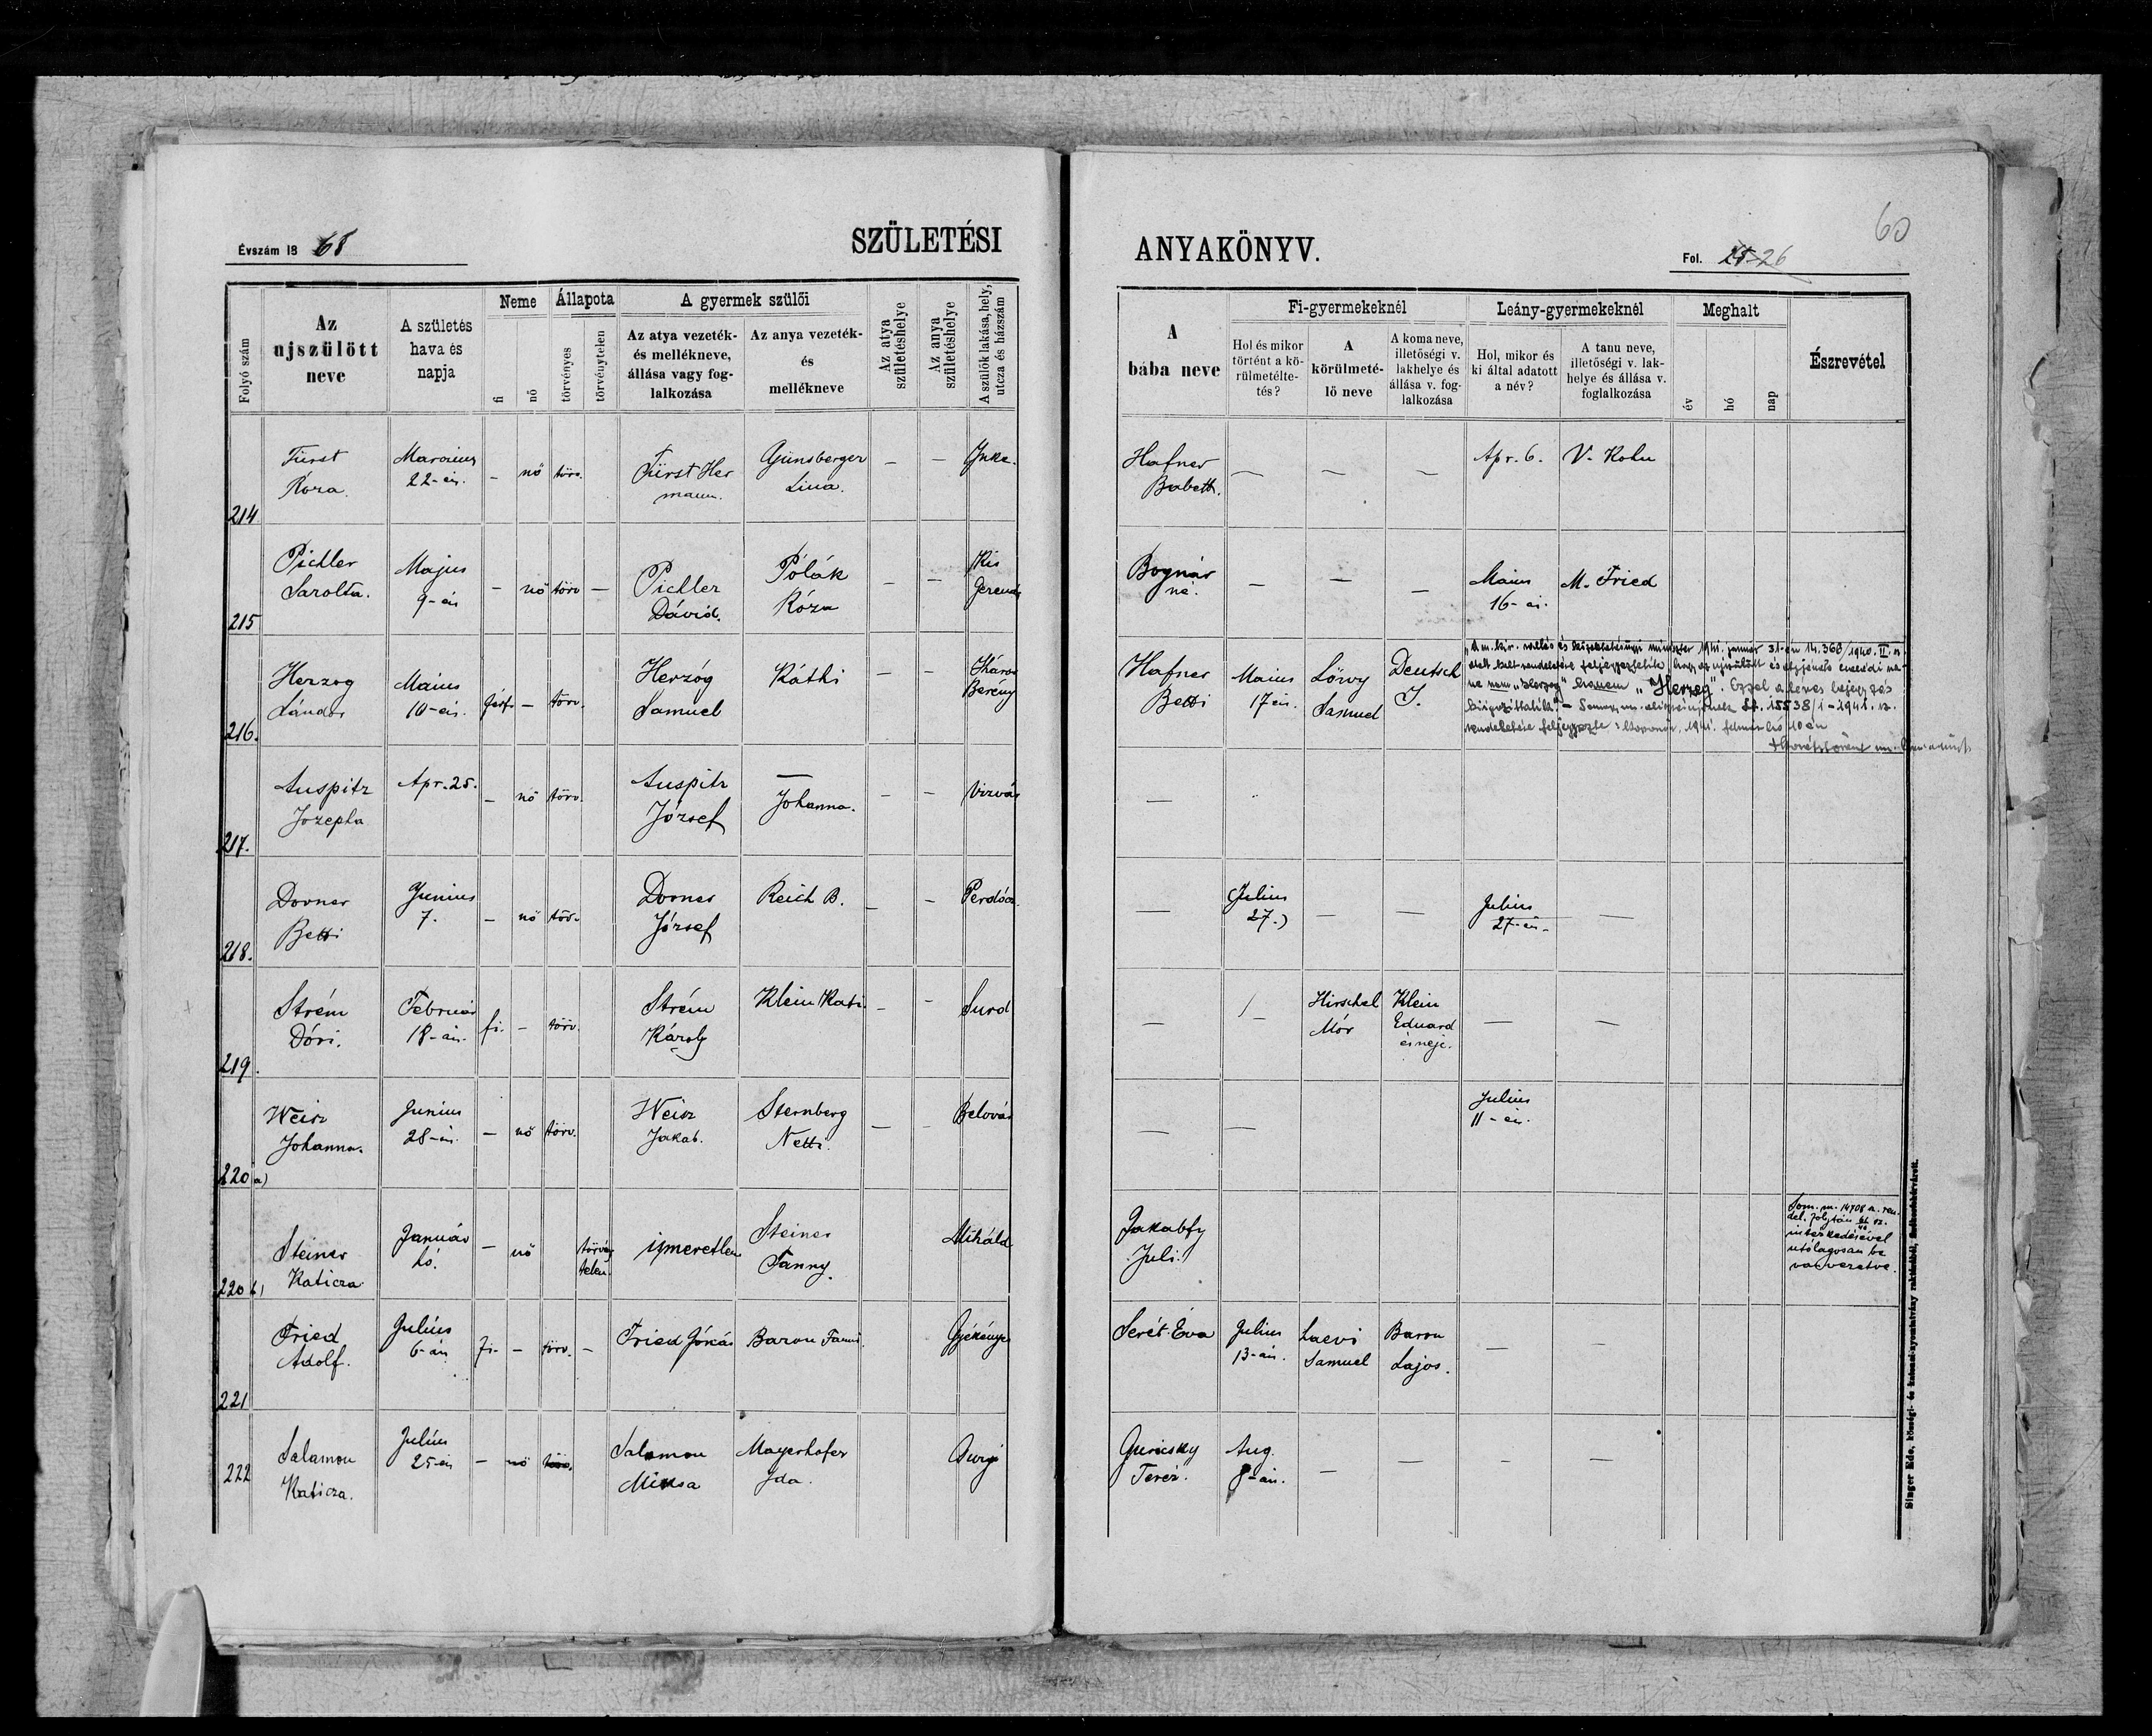 Évszám 1868
SZÜLETÉSI
Folyó szám
Az ujszülött neve
A születés hava és napja
Neme
fi
nő
Állapota
törvényes
törvénytelen
A gyermek szülői
Az atya vezeték- és mellékneve, állása vagy foglalkozása
Az anya vezeték- és mellékneve
Az atya születéshelye
Az anya születéshelye
A szülők lakása, hely, utcza és házszám
214 Fürst Róza. Marczius 22-én. – nő törv. Fürst Hermann. Günsberger Lina. – – Inke.
215 Pichler Sarolta. Majus 9-én – nő törv – Pichler Dávid. Pólák Róza – – Kis
216. Herzog Sándor Május 10-én. férf. – törv. Herzóg Samuel Káthi – – Iháros Berény
217. Auspitz Jozepha Apr. 25. – nő törv. Auspitz József — Johanna. – – Vizvár
218. Dorner Betti Junius 7. – nő törv. Dorner József Reich B. – – Perdócz
219. Strém Dóri. Február 18-án. fi. – törv. Strém Károly Klein Kati. – – Surd
220 a) Weisz Johanna. Junius 28-án. – nő törv. Weisz Jakab. Sternberg Netti. – – Belovár
220 b) Steiner Katicza Január hó. – nő törvény telen. ismeretlen Steiner Fanny. Miháld
221 Fried Adolf. Julius 6-án fi- – törv. – Fried Jónás Baron Fanni. Gyékényes
222 Salamon Katicza. Julius 25-én – nő törv. Salamon Miksa Mayerhofer Ida. Csurgó
ANYAKÖNYV.
60
Fol. 25 26
A bába neve
Fi-gyermekeknél
Hol és mikor történt a körülmetéltetés?
A körülmetélő neve
A koma neve, illetőségi v. lakhelye és állása v. foglalkozása
Leány-gyermekeknél
Hol, mikor és ki által adatott a név?
A tanu neve, illetőségi v. lakhelye és állása v. foglalkozása
Meghalt
év
hó
nap
Észrevétel
Hafner Babett. – – – Apr. 6. V. Kohn
Bognár né. – – – Maius 16-án. M. Fried
Hafner Betti Maius 17 én. Löwy Samuel Deutsch I.
„A m. kir. vallás és közoktatásügyi miniszter 1941. január 31-én 14.360/1940. II. sz.
alatt kelt rendeletére feljegyeztetik, hogy az ujszülött és atyjának családi ne-
ve nem „Herzog" hanem „Herzeg". Ezzel a téves bejegyzés
kiigazittatik." – Somogy vm. alispánjának 15538/1-1941. sz.
rendeletére feljegyezte:
—
— (Julius 27.) — — Julius 27-én. —
— — Hirschel Mór Klein Eduard és neje. — —
— — Julius 11-én.
Jakabfy Juli.
Som. m. 14708 a. ren.
del. folytán
intézkedésével
utólagosan be
van vezetve.
Serét Éva Julius 13-án. Laevi Samuel Baron Lajos. — —
Guricsky Teréz. Aug. 8-án. — — – —
Singer Ede, községi- és katonai-nyomtatvány raktárából, Székesfehérvárott.